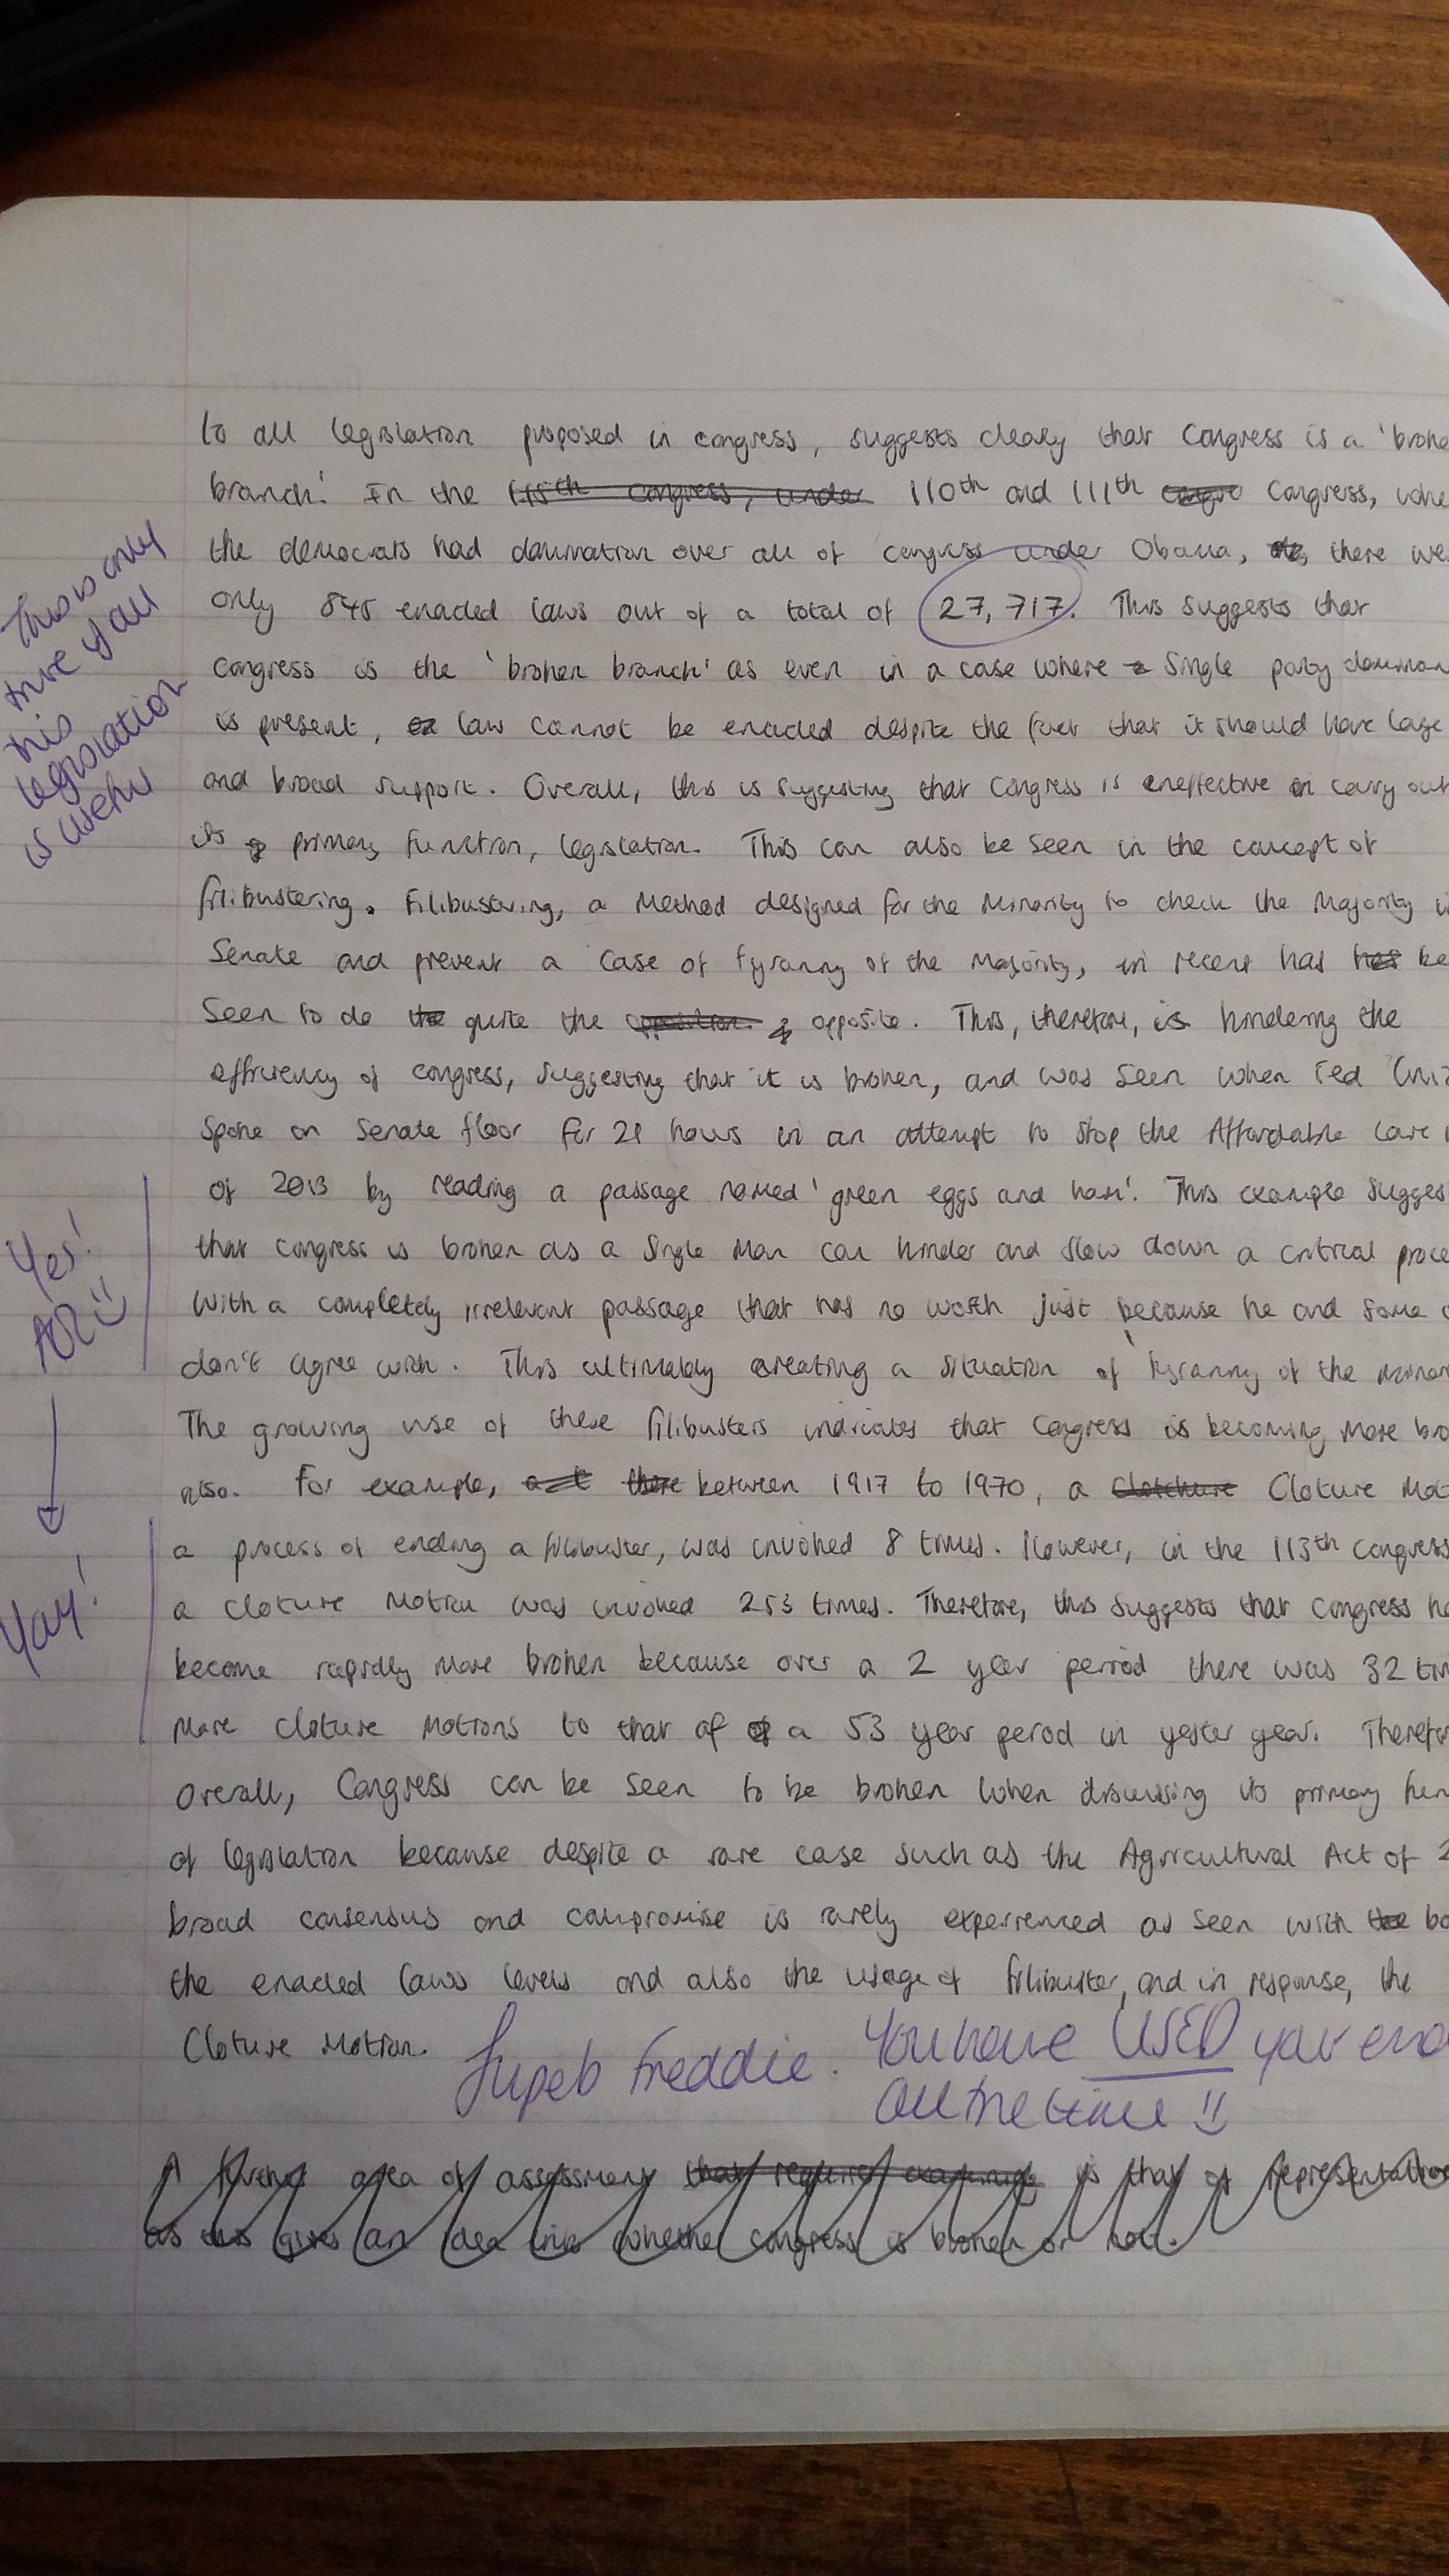 to all legislation proposed in congress, suggests clearly that Congress is a 'broke
branch'. In the 115th congress, under 110th and 111th Congress, whe
the democrats had domination over all of congress under Obama, there we
only 845 enacted laws out of a total of 27,717. This suggests that
congress is the 'broken branch' as even in a case where a single party dominan
is present, law cannot be enacted despite the fact that it should have large
and broad support. Overall, this is suggesting that Congress is ineffective in carry out
its primary function, legislation. This can also be seen in the concept of
filibustering. Filibustering, a Method designed for the Minority to check the Majority i
Senate and prevent a case of tyranny of the Majority, in recent has has be
seen to do the quite the opposition. opposite. This, therefore, is hindering the
efficiency of congress, suggesting that it is broken, and was seen when Ted Cruz
spoke on Senate floor for 21 hours in an attempt to stop the Affordable Care
of 2013 by reading a passage named 'green eggs and ham'. This example sugges
that congress is broken as a single man can hinder and slow down a critical proce
with a completely irrelevant passage that has no worth just because he and some o
don't agree with. This ultimately creating a situation of 'tyranny of the minor
The growing use of these filibusters indicates that Congress is becoming more bro
also. For example, there between 1917 to 1970, a Clotchure Cloture Mot
a process of ending a filibuster, was invoked 8 times. However, in the 113th congress
a cloture Motion was invoked 253 times. Therefore, this suggests that congress ha
become rapidly more broken because over a 2 year period there was 32 tim
more cloture Motions to that of a 53 year period in yester year. Therefor
overall, Congress can be seen to be broken when discussing its primary fun
of legislation because despite a rare case such as the Agricultural Act of 2
broad consensus and compromise is rarely experienced as seen with the bo
the enacted laws levels and also the usage of filibuster, and in response, the
Cloture Motion.
This is only
true if all
this
legislation
is useful
Yes!
AO2
Yay!
Superb Freddie. You have USED your evid
all the time
A further area of assessment that requires examining is that of representation
as this gives an idea into whether congress is broken or not.